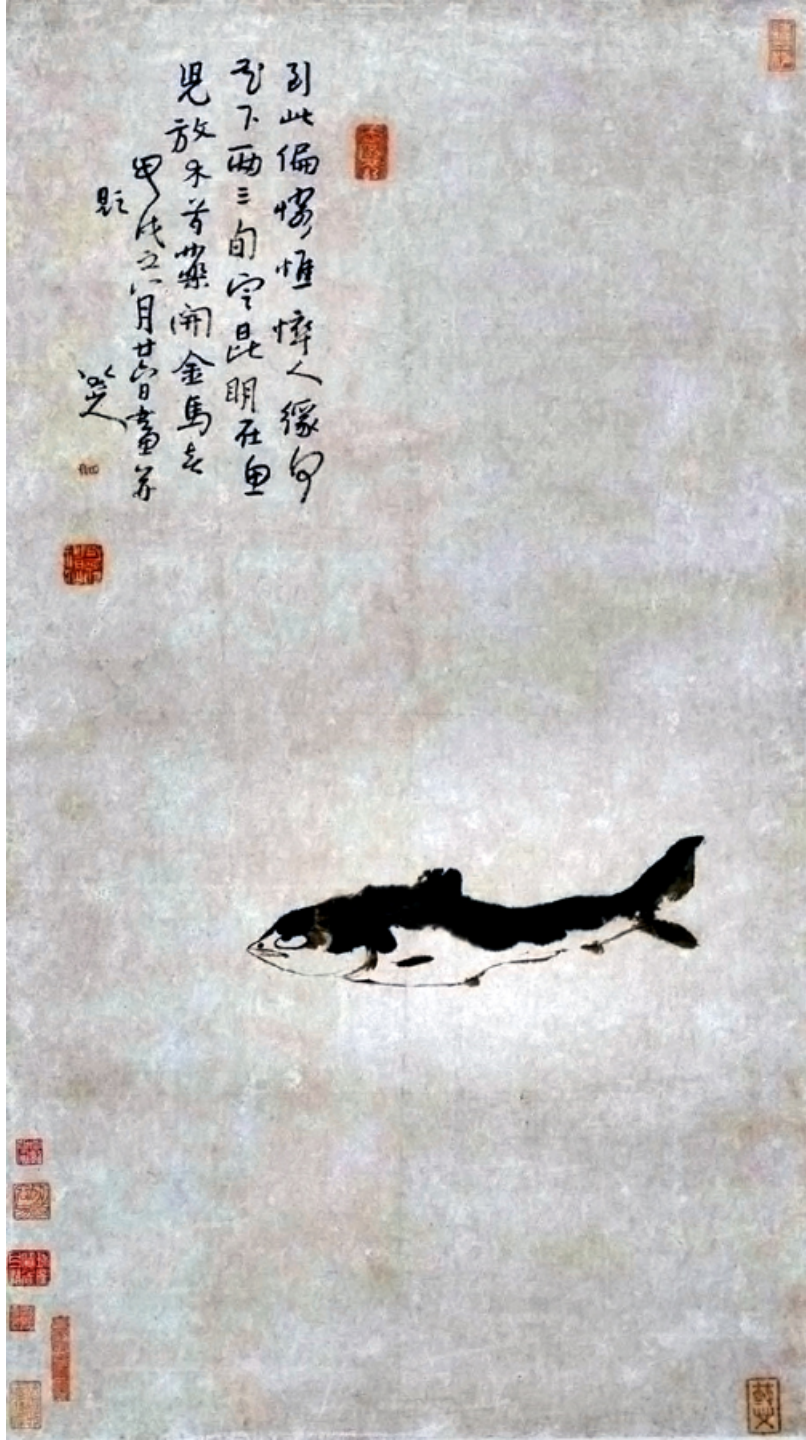 到此偏憐憔悴人緣何
花下兩三旬定昆明在魚
兒放木芍藥開金馬春
甲戌之八月廿六日畫并
題
八大山人